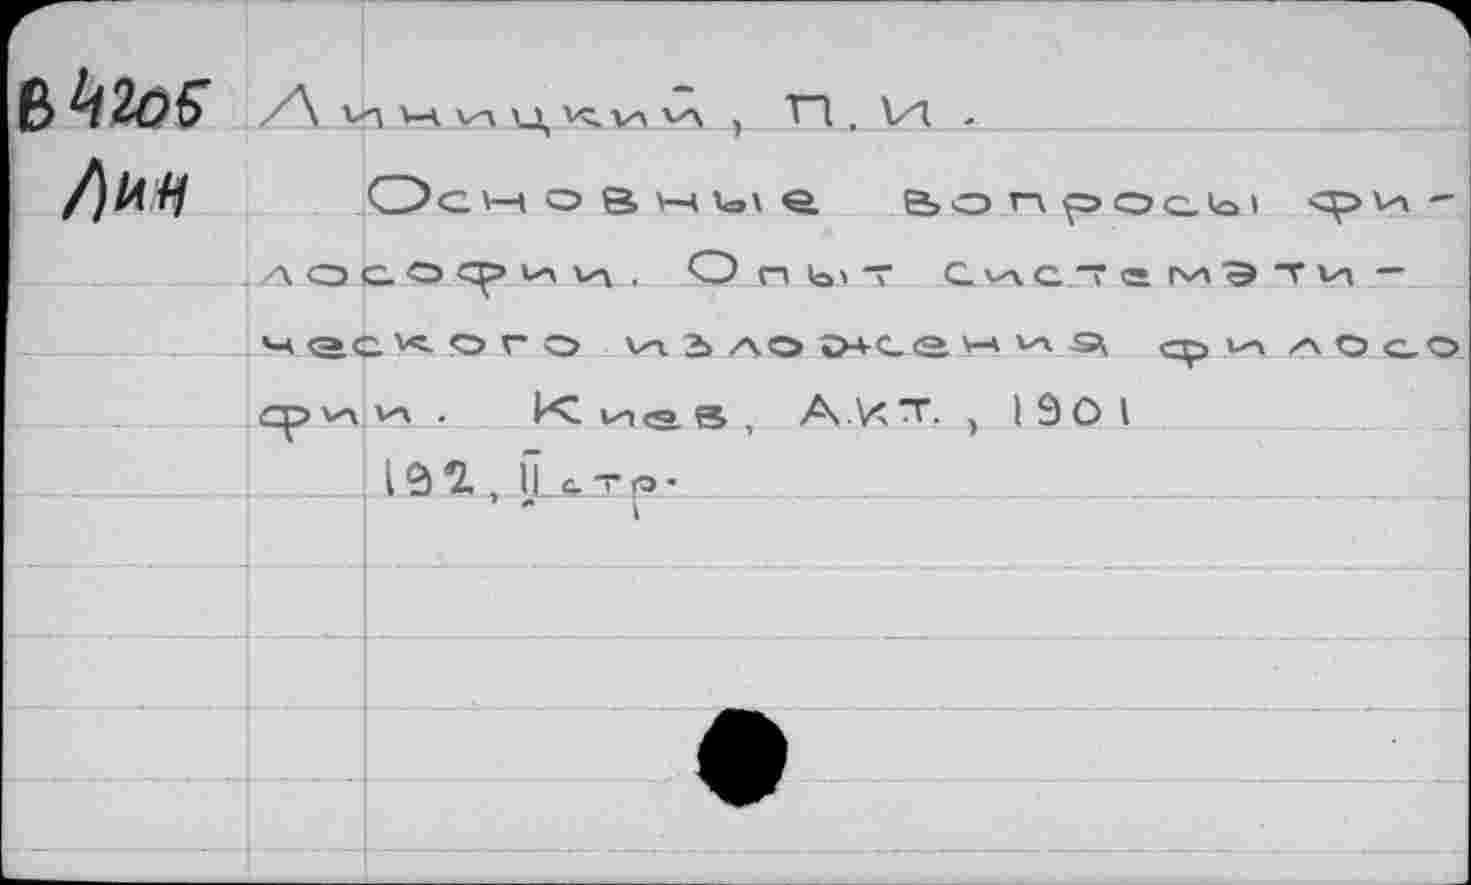 В4206 Линицкий, П. И.
Лин Основные вопросы фи-
лософии. Опыт системати-
ческого изложения филосо
фии. Киев, А.К.Т., 1901
192, II стр.